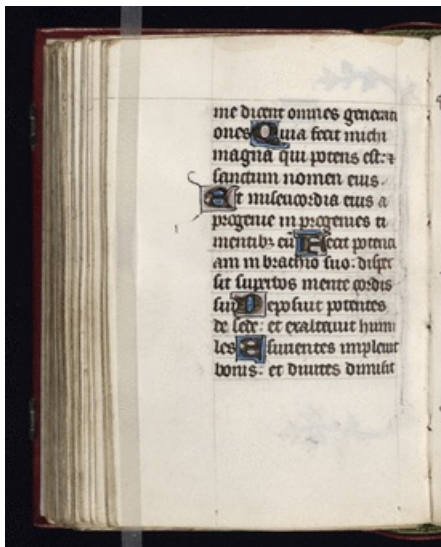 me dicent omnes generati
ones Quia fecit michi
magna qui potens est: ⁊
sanctum nomen eius.
Et misericordia eius a
progenie in progenies ti
mentibꝫ eū Fecit potenci
am in brachio suo: disper
sit superbos mente cordis
sui Deposuit potentes
de sede: et exaltauit humi
les Esurientes impleuit
bonis: et diuites dimisit